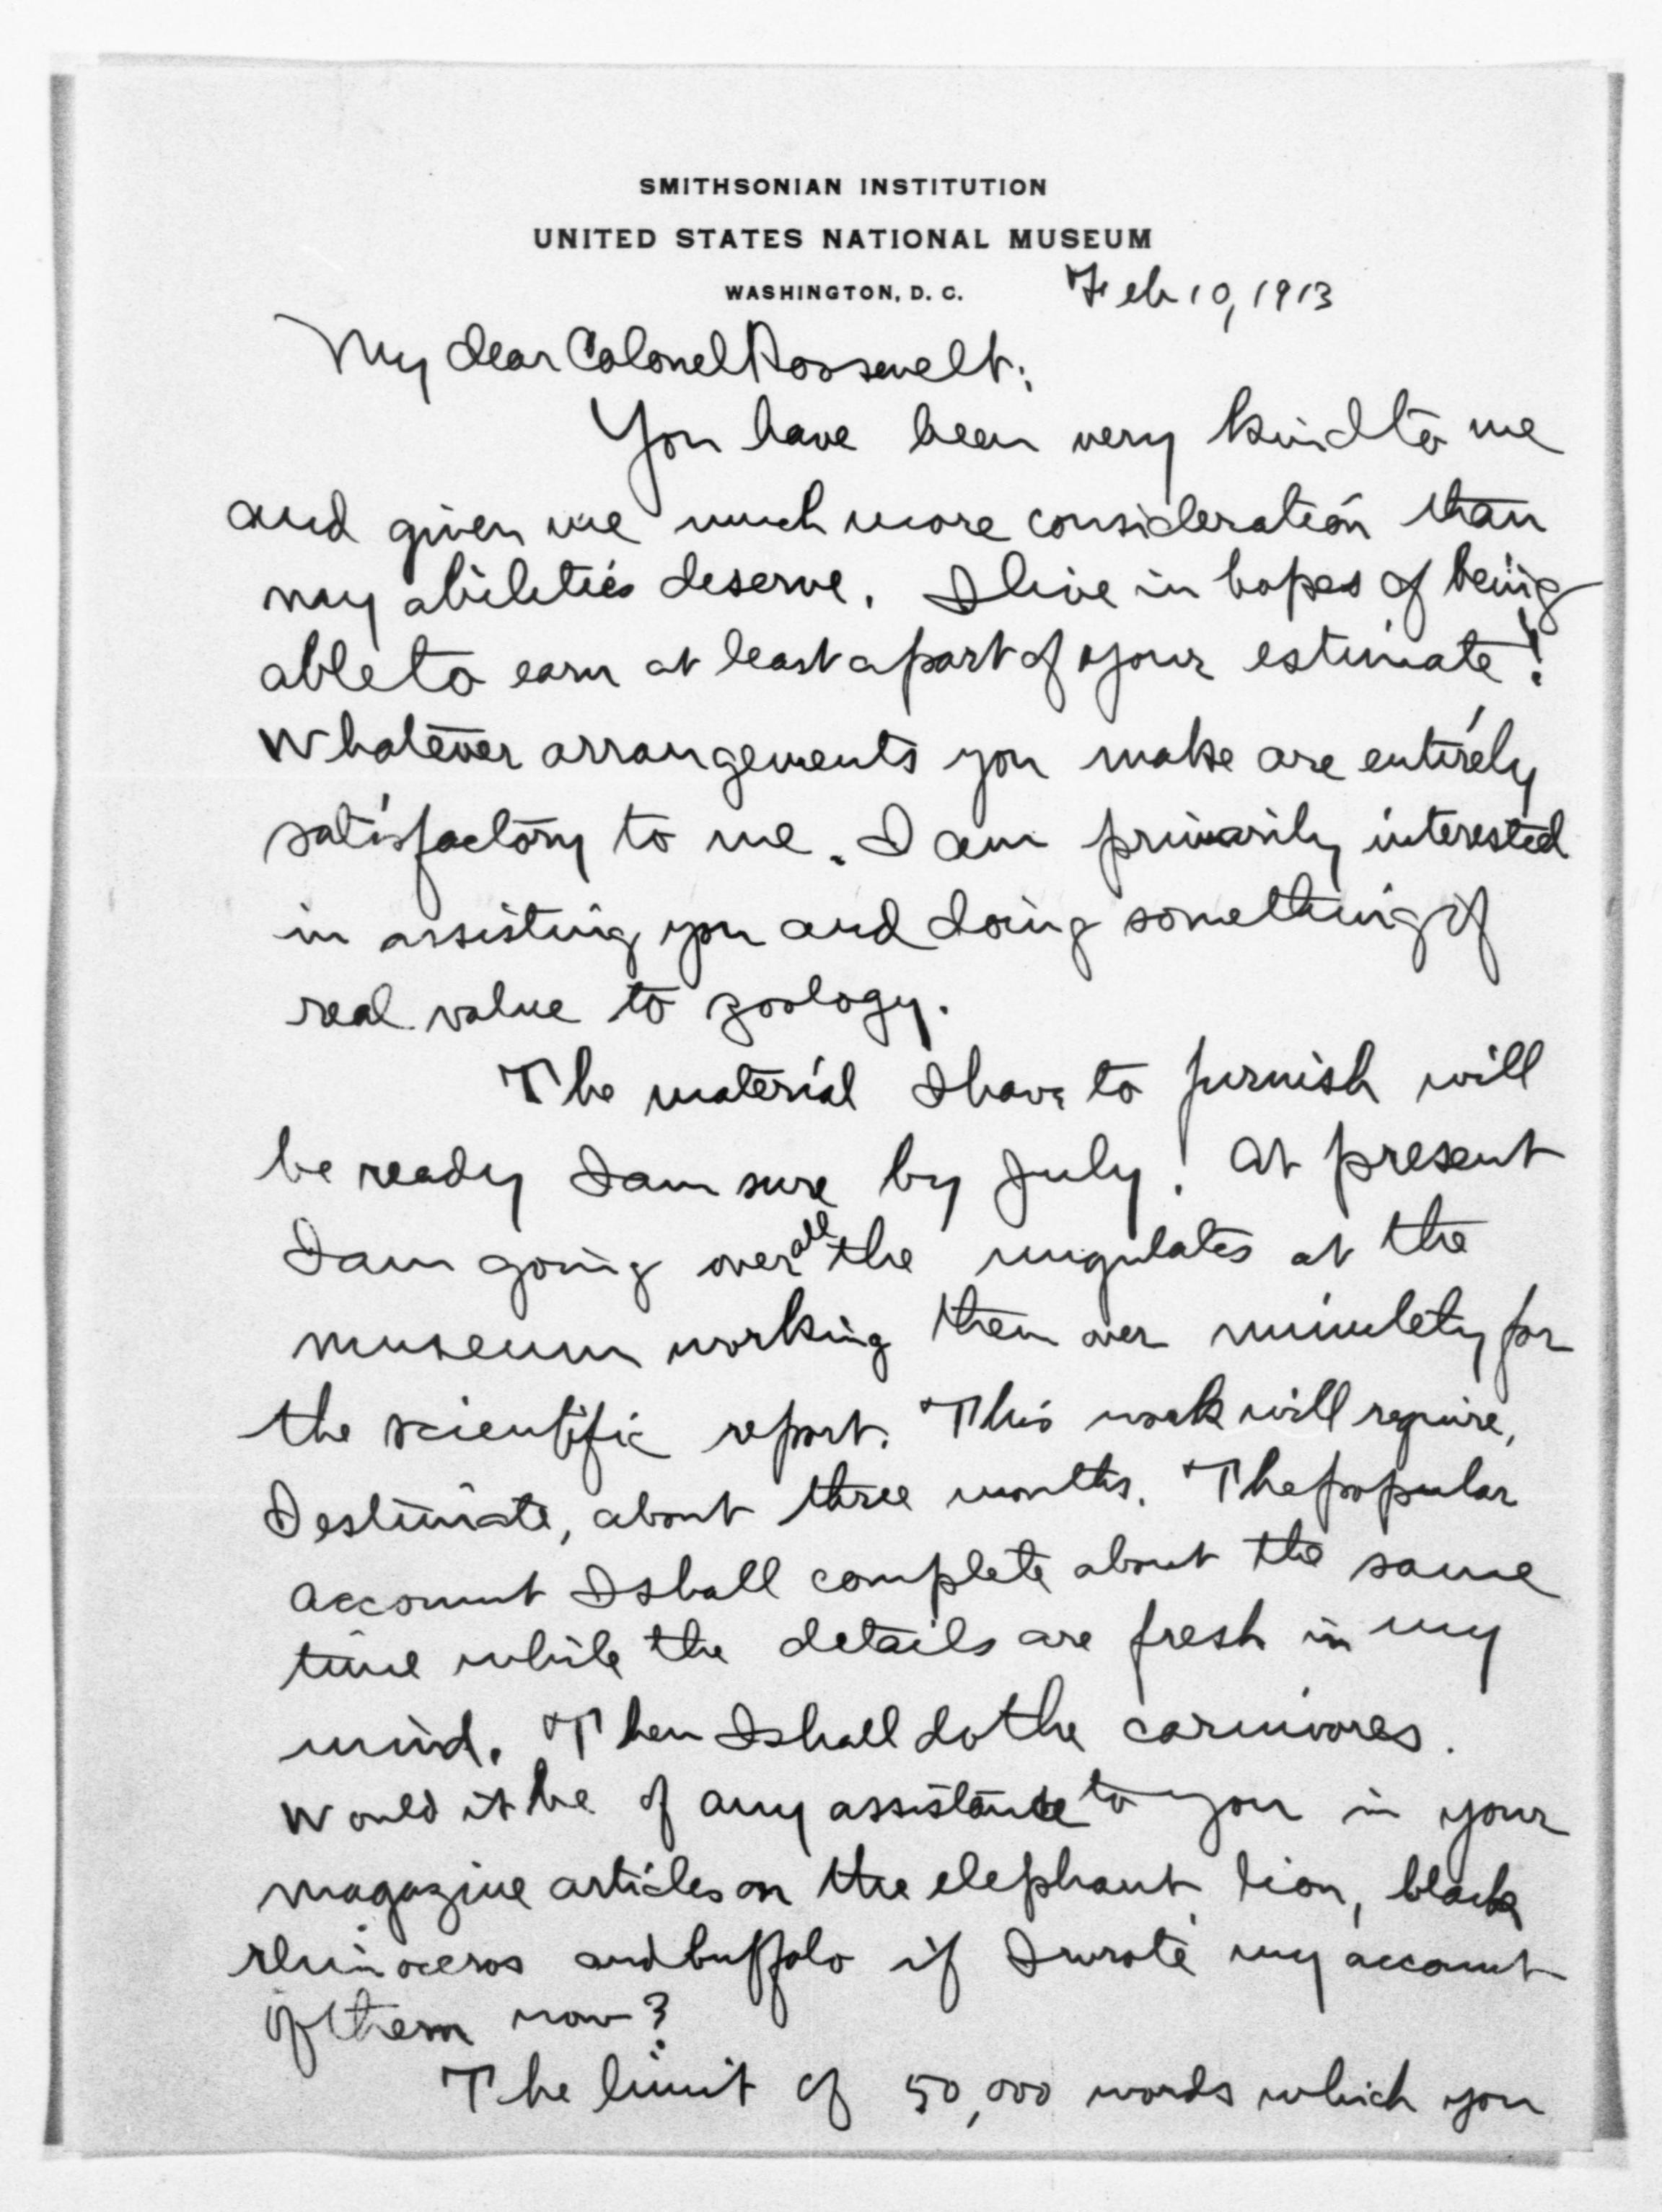 SMITHSONIAN INSTITUTION
UNITED STATES NATIONAL MUSEUM
WASHINGTON, D. C.
Feb 10, 1913
My dear Colonel Roosevelt:
You have been very kind to me
and given me much more consideration than
my abilities deserve. I live in hopes of being
able to earn at least a part of your estimate!
Whatever arrangements you make are entirely
satisfactory to me. I am primarily interested
in assisting you and doing something of
real value to zoology.
The material I have to furnish will
be ready I am sure by July! At present
I am going over all the ungulates at the
museum working them over minutely for
the scientific report. This work will require,
I estimate, about three months. The popular
account I shall complete about the same
time while the details are fresh in my
mind. Then I shall do the carnivores.
Would it be of any assistance to you in your
magazine articles on the elephant, lion, black
rhinoceros and buffalo if I wrote my account
of them now?
The limit of 50,000 words which you